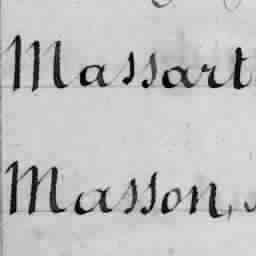 Massart
Masson,